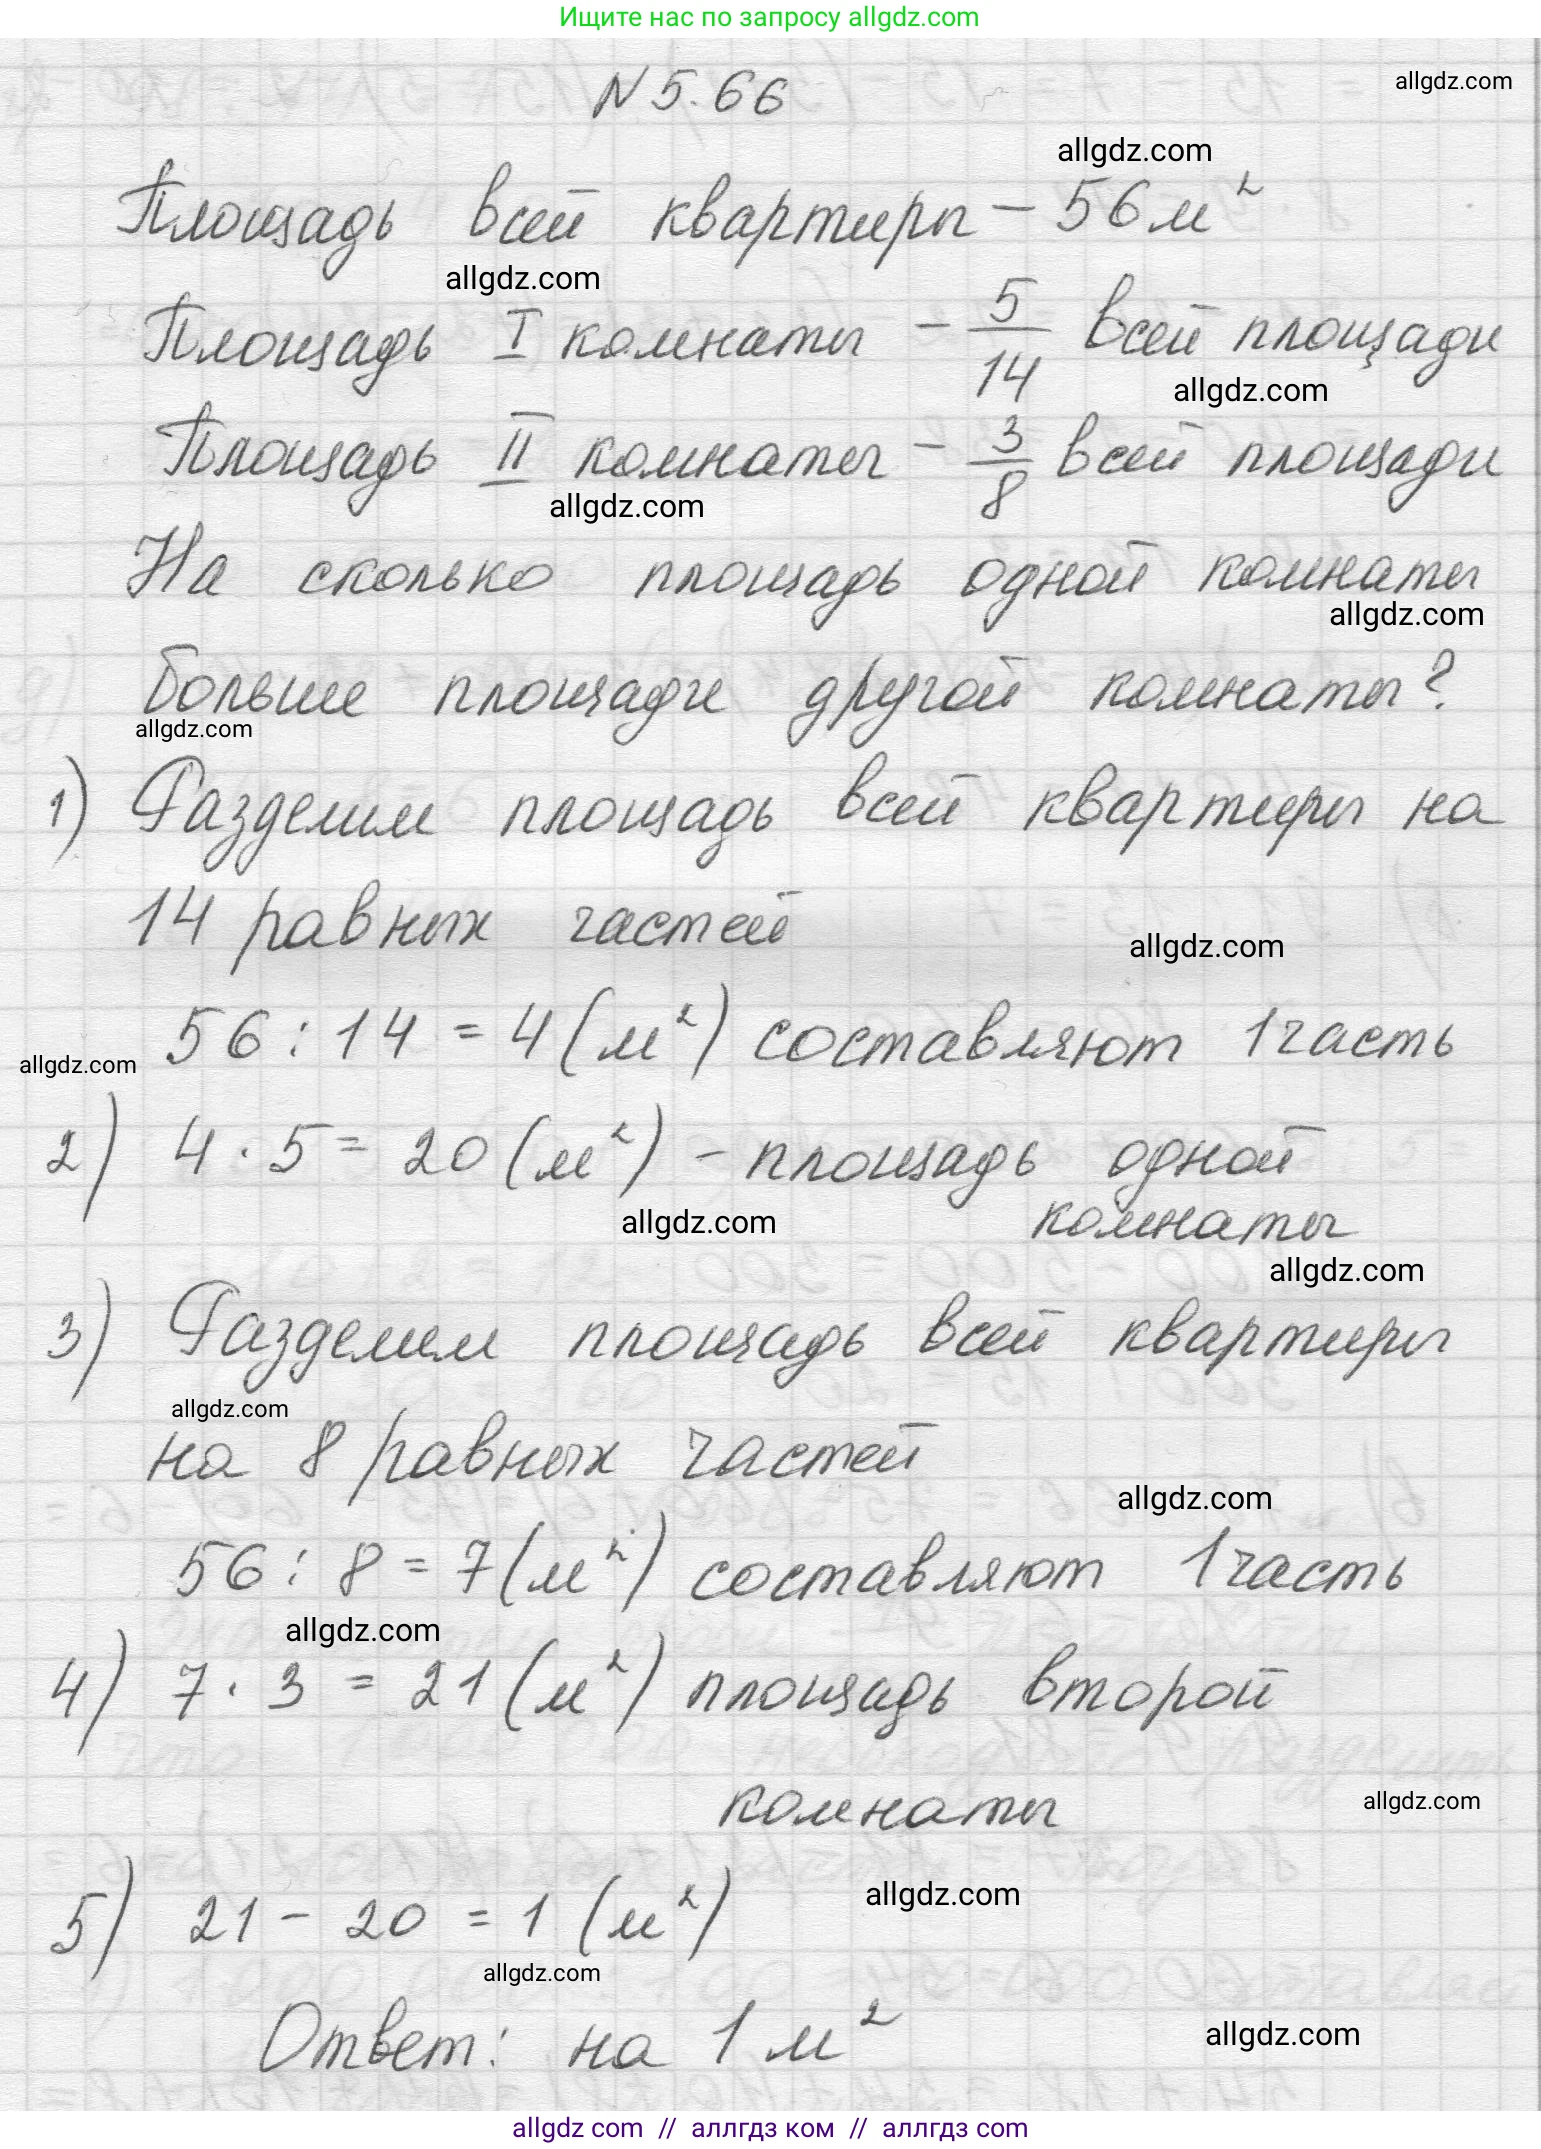 Ищите нас по запросу allgdz.com
N 5.66
allgdz.com
allgdz.com
Площадь всей квартиры – 56 м²
allgdz.com
Площадь I комнаты – 5/14 всей площади
allgdz.com
Площадь II комнаты – 3/8 всей площади
allgdz.com
На сколько площадь одной комнаты
allgdz.com
больше площади другой комнаты?
allgdz.com
1) Разделим площадь всей квартиры на
14 равных частей
allgdz.com
56 : 14 = 4 (м²) составляют 1 часть
allgdz.com
2) 4 · 5 = 20 (м²) – площадь одной
комнаты
allgdz.com
allgdz.com
3) Разделим площадь всей квартиры
allgdz.com
на 8 равных частей
allgdz.com
56 : 8 = 7 (м²) составляют 1 часть
allgdz.com
4) 7 · 3 = 21 (м²) площадь второй
комнаты
allgdz.com
allgdz.com
5) 21 – 20 = 1 (м²)
allgdz.com
Ответ: на 1 м²
allgdz.com
allgdz com // аллгдз ком // allgdz.com